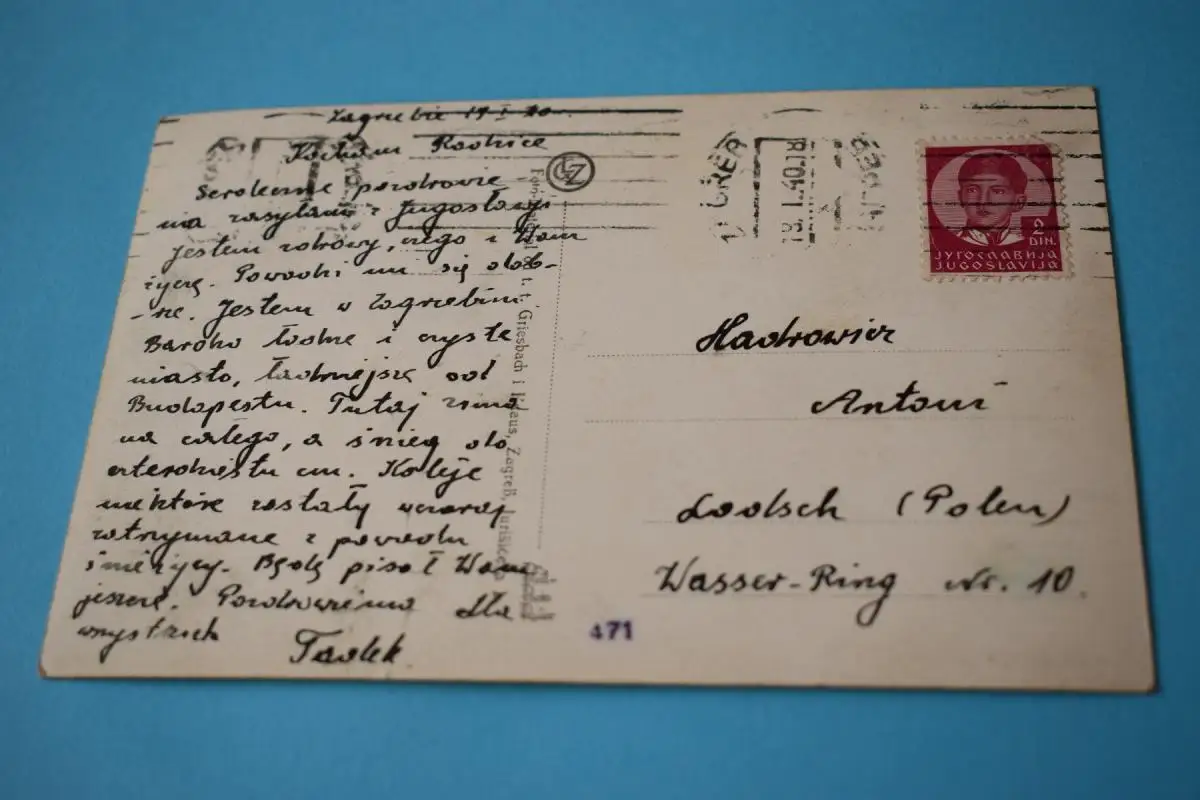 Zagrzebie 17 I 40.
Kochani Rodzice
Serdeczne pozdrowie
nia zasyłam z Jugosławji
Jestem zdrowy, czego i Wam
życzę. Powodzi mi się dob-
-rze. Jestem w Zagrzebiu.
Bardzo ładne i czyste
miasto, ładniejsze od
Budapesztu. Tutaj zima
na całego, a śnieg do
czterdziestu cm. Koleje
niektóre zostały wczoraj
zatrzymane z powodu
śnieżycy. Będę pisał Wam
jeszcze. Pozdrowienia dla
wszystkich
Tadek
Griesbach i Knaus, Zagreb, Jurišićeva
ZAGREB
2
DIN.
ЈУГОСЛАВИЈА
JUGOSLAVIJA
Antoni
Lodsch (Polen)
Wasser-Ring Nr. 10.
471